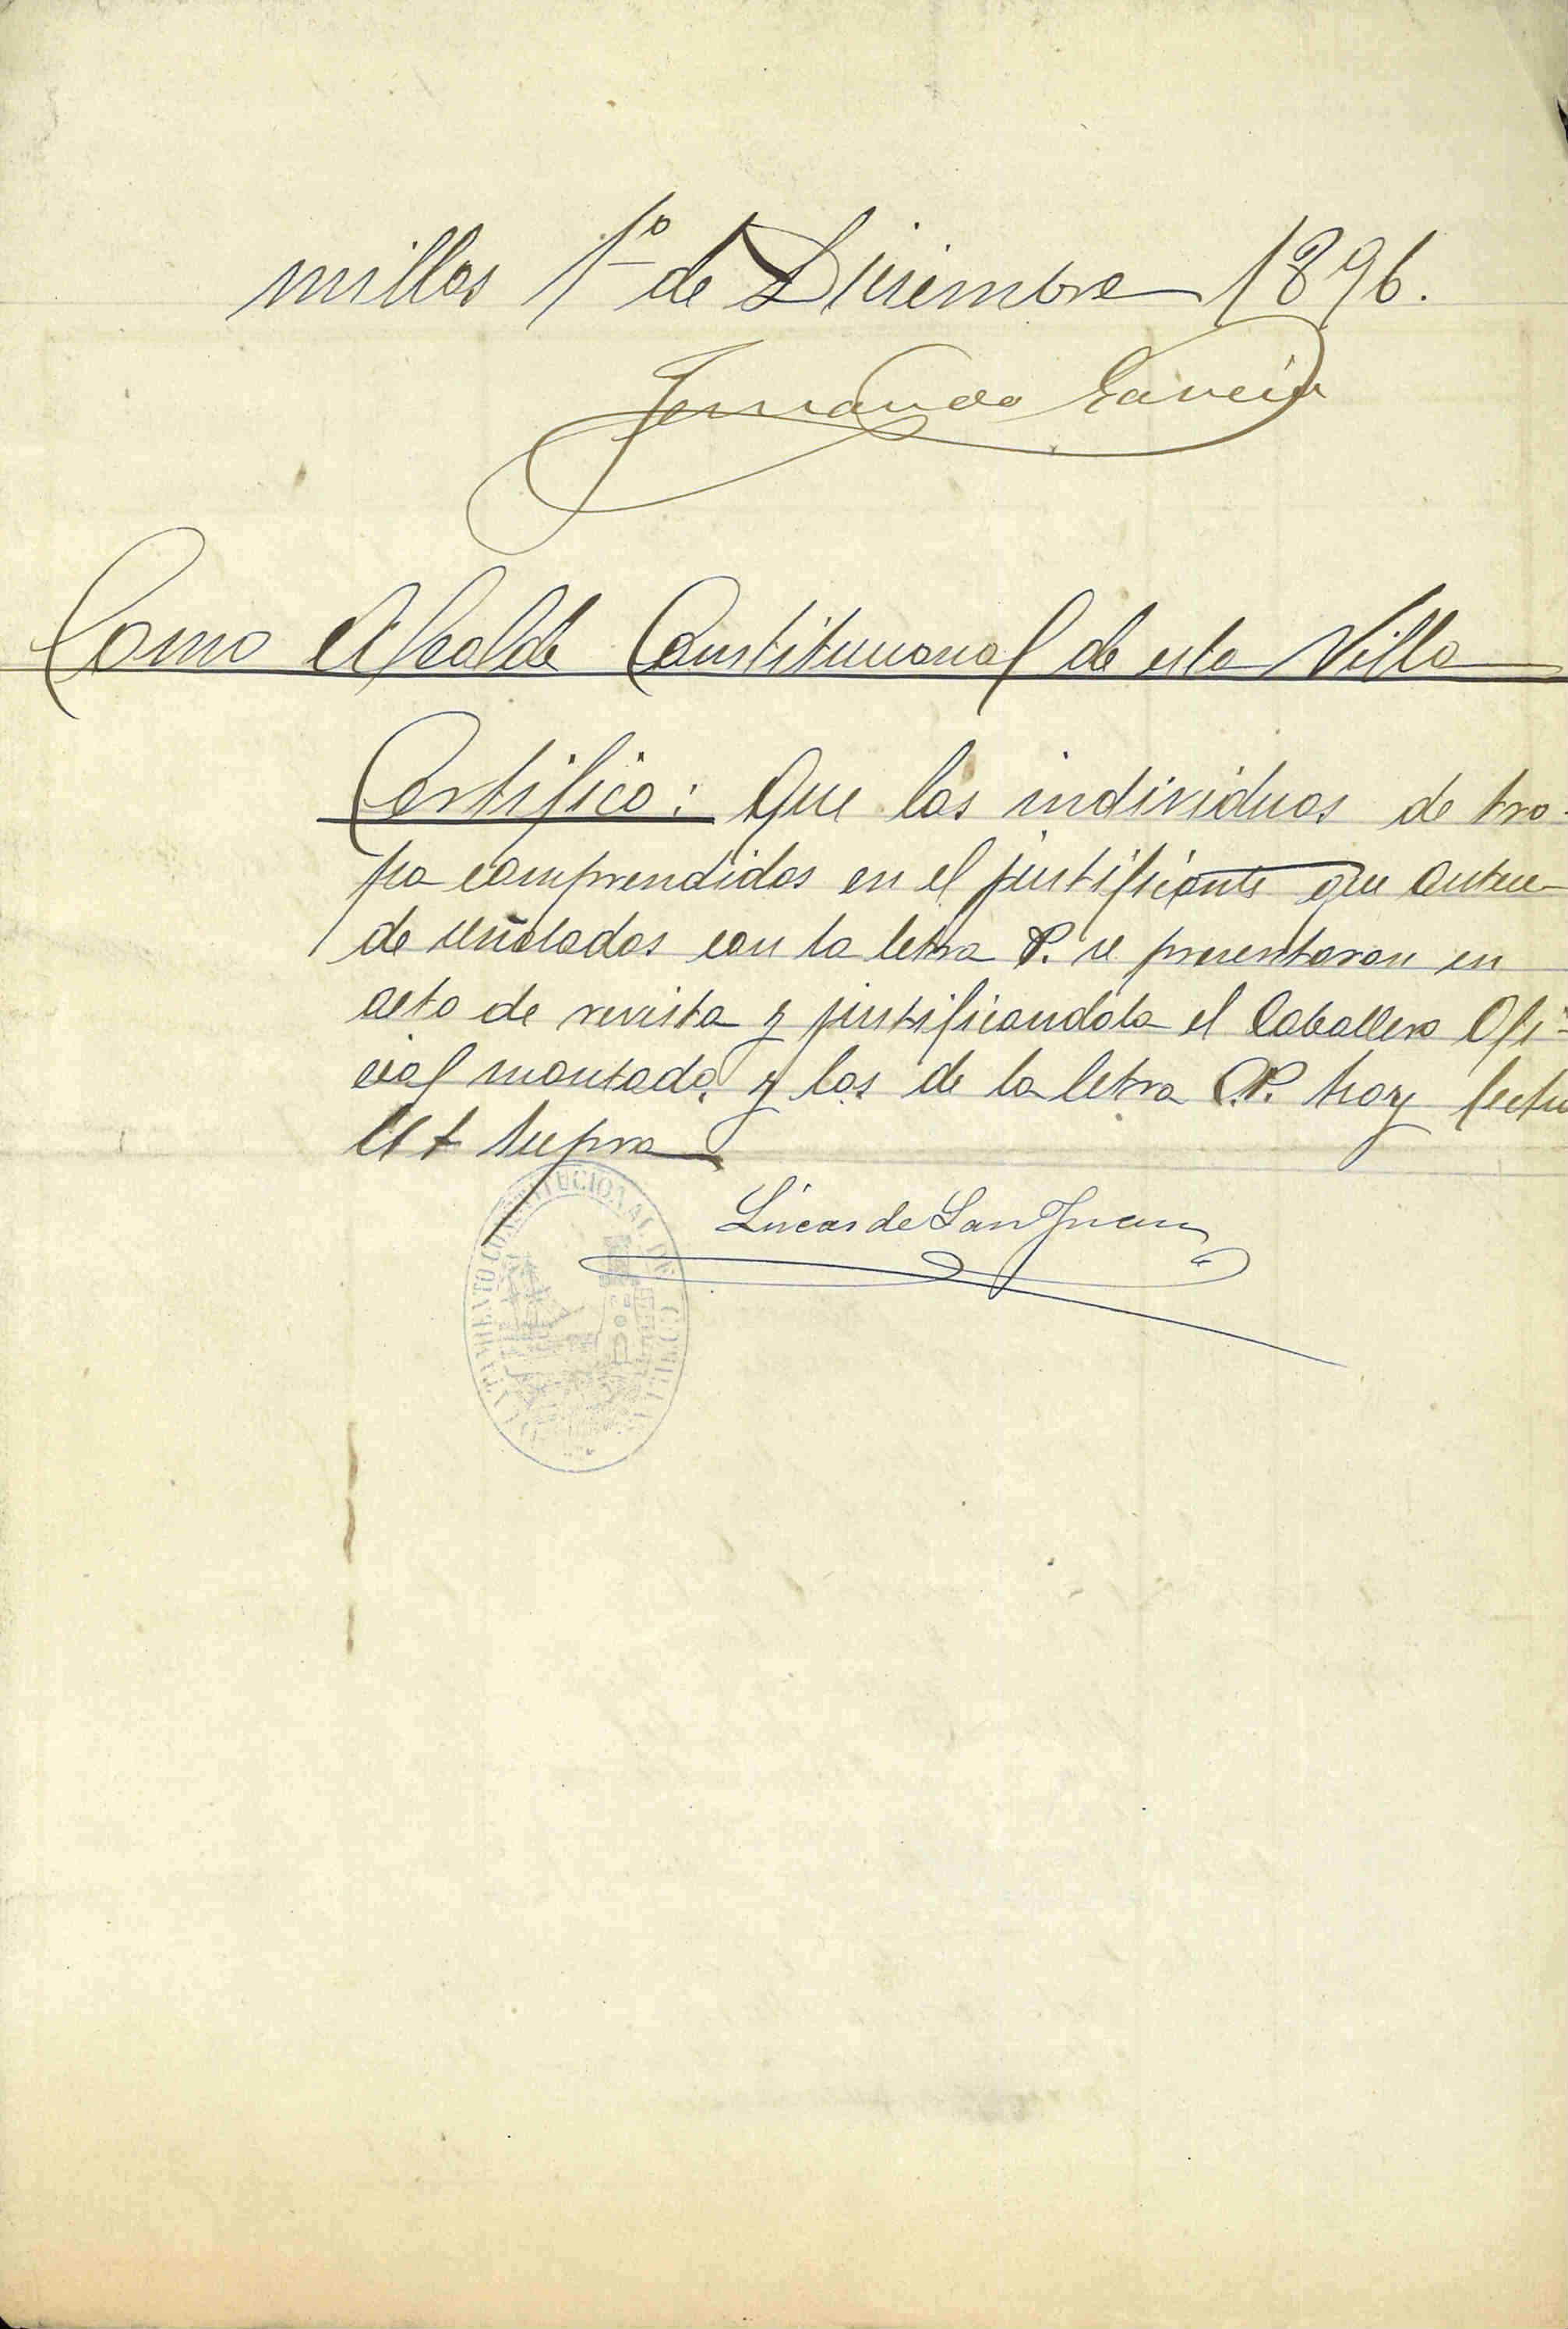 millas 1º de Diciembre 1896.
Fernando Garcia
Como Alcalde Constitucional de esta Villa
Certifico: Que los individuos de tro-
pa comprendidos en el justificante que antece-
de señalados con la letra P. se presentaron en
acto de revista y justificandola el Caballero Ofi-
cial montado, y los de la letra P. hoy fecha
Ut supra
Lúcas de San Juan
CONSTITUCIONAL DE